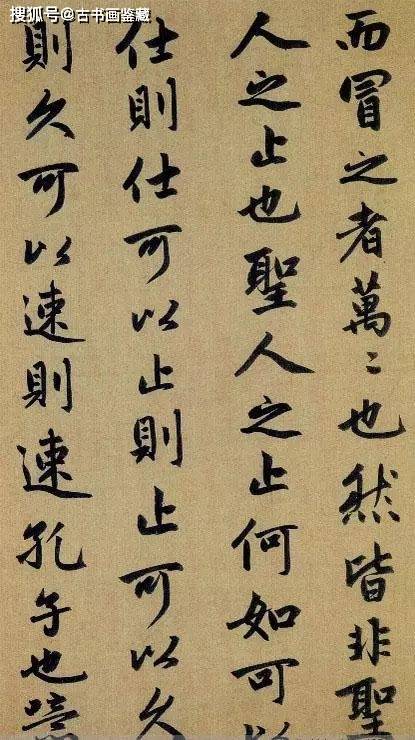 搜狐号@古书画鉴藏
而冒之者萬〻也然皆非聖
人之止也聖人之止何如可以
仕則仕可以止則止可以久
則久可以速則速孔子也噫